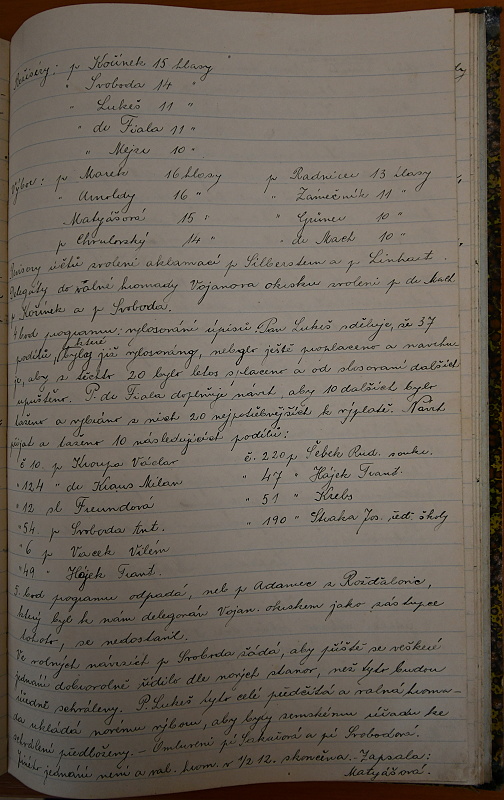 Režiséry: p Kořínek 15 hlasy
" Svoboda 14 "
" Lukeš 11 "
" dr Fiala 11 "
" Mejzr 10 "
Výbor: p Marek 16 hlasy p Radnicer 13 hlasy
" Arnoldy 16 " " Zámečník 11 "
Matyášová 15 " " Grüner 10 "
p Chrulovský 14 " " dr Mach 10 "
Revisory účtů zvoleni aklamací p Silberstein a p Linhart.
Delegáty do valné hromady Vojanova okrsku zvoleni p dr Mach
p Kořínek a p Svoboda.
4 bod programu: vylosování úpisů. Pan Lukeš sděluje, že 37
podílů, které bylo již vylosováno, nebylo ještě proplaceno a navrhu
je, aby z těchto 20 bylo letos splaceno a od slosování dalších
upuštěno. P. dr Fiala doplňuje návrh, aby 10 dalších bylo
taženo a vybráno z nich 20 nejpotřebnějších k výplatě. Návrh
přijat a taženo 10 následujících podílů:
č 10. p Kroupa Václav č. 220 p Šebek Rud. soukr.
" 124 " dr Kraus Milan " 47 " Hájek Frant.
" 12 sl Freundová " 51 " Krebs
" 54. p Svoboda Ant. " 190 " Straka Jos., řed. školy
" 6 p Vacek Vilém
" 49 " Hájek Frant.
5. bod programu odpadá, neb p Adamec z Rožďalovic,
který byl k nám delegován Vojan. okrskem jako zástupce
tohoto, se nedostavil.
Ve volných návrzích p Svoboda žádá, aby příště se veškeré
jednání dobrovolně řídilo dle nových stanov, než tyto budou
úředně schváleny. P Lukeš tyto celé předčítá a valná hroma-
da ukládá novému výboru, aby byly zemskému úřadu ke
schválení předloženy. – Omluveni pí Sakařová a pí Svobodová.
jednání není a val. hrom. v 1/2 12. skončena. Zapsala:
Matyášová.